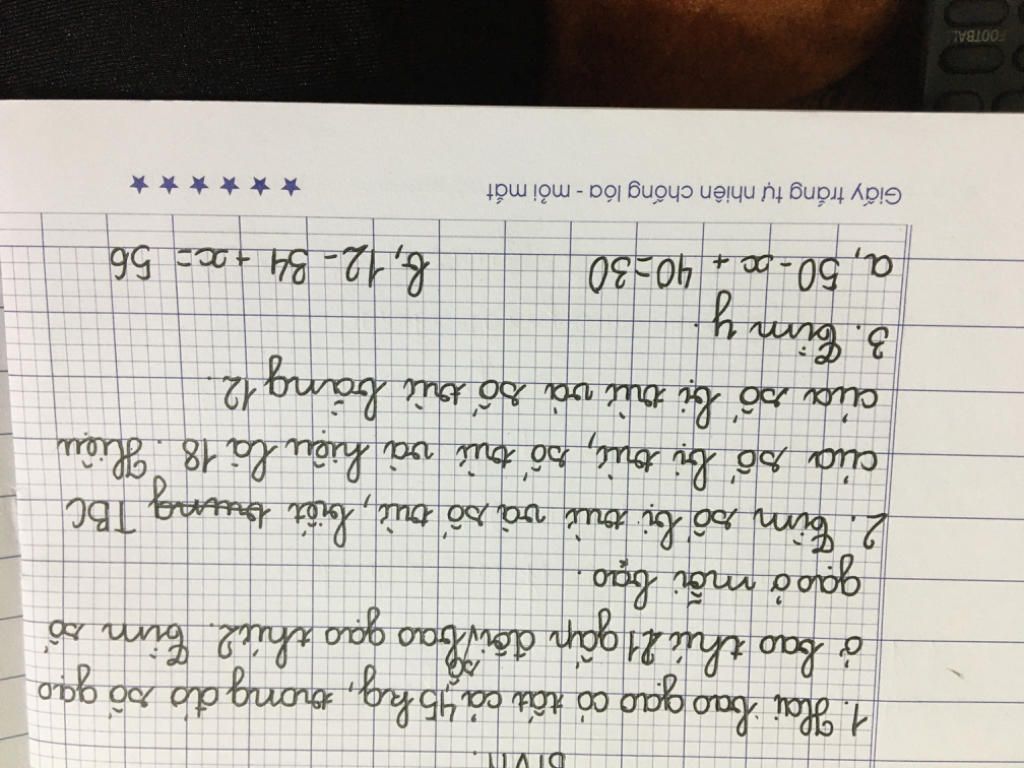 BTVN.
1. Hai bao gạo có tất cả 45 kg, trong đó số gạo
ở bao thứ 1 gấp đôi số bao gạo thứ 2. Tìm số
gạo ở mỗi bao.
2. Tìm số bị trừ và số trừ, biết trung TBC
của số bị trừ, số trừ và hiệu là 18. Hiệu
của số bị trừ và số trừ bằng 12.
3. Tìm y.
a, 50 - x + 40 = 30 b, 12 - 34 + x = 56
Giấy trắng tự nhiên chống lóa - mỏi mắt ★ ★ ★ ★ ★ ★
FOOTBALL